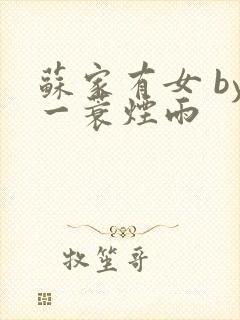 蘇家有女 by
一蓑煙雨
牧笙哥